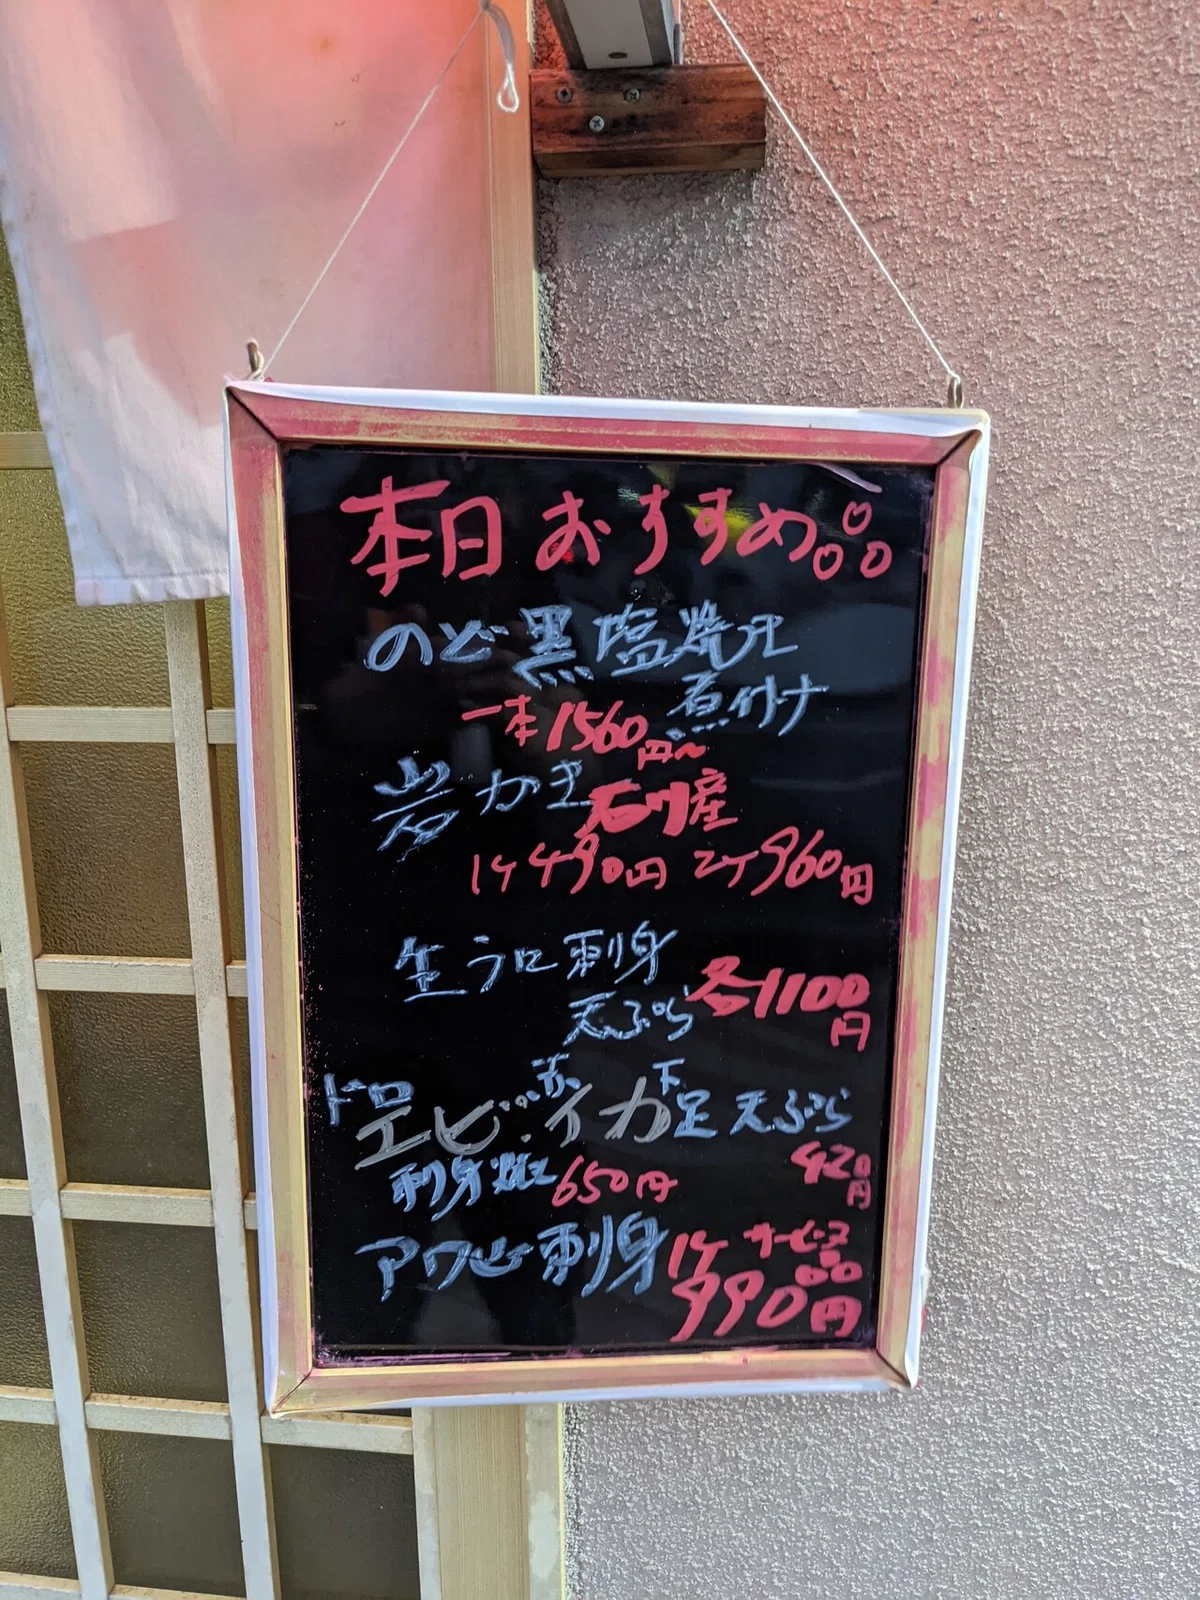 本日おすすめ
のど黒塩焼
煮付け
一本1560円〜
岩かき石川産
1ケ490円 2ケ960円
生ウニ刺身
天ぷら各1100円
ドロエビ イカ下足天ぷら
刺身 650円 420円
アワビ刺身 1ケ サービス品
990円